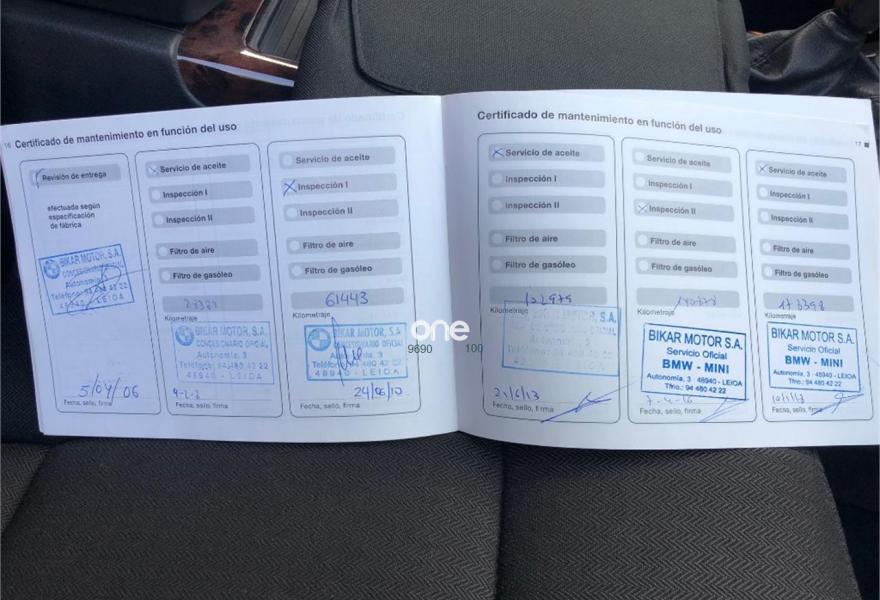 16 Certificado de mantenimiento en función del uso
Revisión de entrega
efectuada según
especificación
de fábrica
BIKAR MOTOR, S.A.
CONCESIONARIO OFICIAL
Autonomía, 3
Teléfono 94 480 42 22
48940 - LEIOA
5/04/06
Fecha, sello, firma
Servicio de aceite
Inspección I
Inspección II
Filtro de aire
Filtro de gasóleo
Kilometraje
BIKAR MOTOR, S.A.
CONCESIONARIO OFICIAL
Autonomía, 3
Teléfono 94 480 42 22
48940 - LEIOA
Fecha, sello, firma
Servicio de aceite
Inspección I
Inspección II
Filtro de aire
Filtro de gasóleo
61443
Kilometraje
BIKAR MOTOR, S.A.
CONCESIONARIO OFICIAL
Autonomía, 3
Teléfono 94 480 42 22
48940 - LEIOA
24/06/10
Fecha, sello, firma
one
9690 100
Certificado de mantenimiento en función del uso 17
Servicio de aceite
Inspección I
Inspección II
Filtro de aire
Filtro de gasóleo
Kilometraje
Fecha, sello, firma
Servicio de aceite
Inspección I
Inspección II
Filtro de aire
Filtro de gasóleo
Kilometraje
BIKAR MOTOR S.A.
Servicio Oficial
BMW - MINI
Autonomía, 3 - 48940 - LEIOA
Tfno.: 94 480 42 22
7-4-16
Fecha, sello, firma
Servicio de aceite
Inspección I
Inspección II
Filtro de aire
Filtro de gasóleo
Kilometraje
BIKAR MOTOR S.A.
Servicio Oficial
BMW - MINI
Autonomía, 3 - 48940 - LEIOA
Tfno.: 94 480 42 22
Fecha, sello, firma